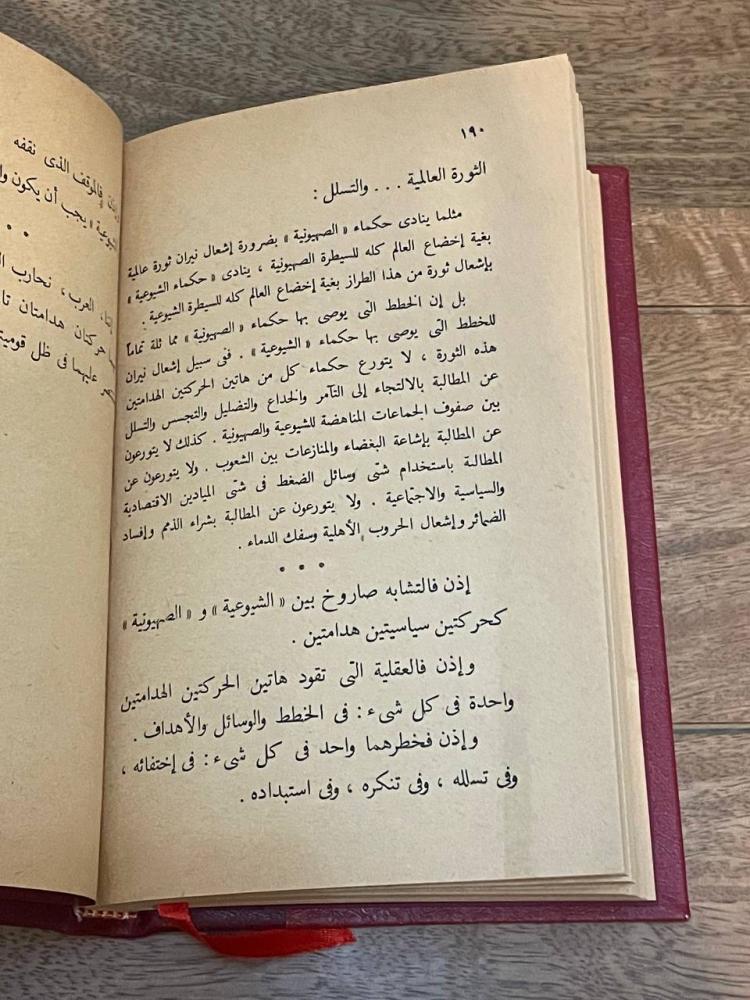 ١٩٠
الثورة العالمية . . . والتسلل :
مثلما ينادى حكماء « الصهيونية » بضرورة إشعال نيران ثورة عالمية
بغية إخضاع العالم كله للسيطرة الصهيونية ، ينادى « حكماء الشيوعية »
بإشعال ثورة من هذا الطراز بغية إخضاع العالم كله للسيطرة الشيوعية .
بل إن الخطط التى يوصى بها حكماء « الصهيونية » مما ثلة تماماً
للخطط التى يوصى بها حكماء « الشيوعية » . ففى سبيل إشعال نيران
هذه الثورة ، لا يتورع حكماء كل من هاتين الحركتين الهدامتين
عن المطالبة بالالتجاء إلى التآمر والخداع والتضليل والتجسس والتسلل
بين صفوف الجماعات المناهضة للشيوعية والصهيونية . كذلك لا يتورعون
عن المطالبة بإشاعة البغضاء والمنازعات بين الشعوب . ولا يتورعون عن
المطالبة باستخدام شتى وسائل الضغط فى شتى الميادين الاقتصادية
والسياسية والاجتماعية . ولا يتورعون عن المطالبة بشراء الذمم وإفساد
الضمائر وإشعال الحروب الأهلية وسفك الدماء .
• • •
إذن فالتشابه صاروخ بين « الشيوعية » و « الصهيونية »
كحركتين سياسيتين هدامتين .
وإذن فالعقلية التى تقود هاتين الحركتين الهدامتين
واحدة فى كل شىء : فى الخطط والوسائل والأهداف .
وإذن فخطرهما واحد فى كل شىء : فى إختفائه ،
وفى تسلله ، وفى تنكره ، وفى استبداده .
فالموقف الذى نقفه
يجب أن يكون
العرب ، نحارب
حركتان هدامتان
عليهما فى ظل